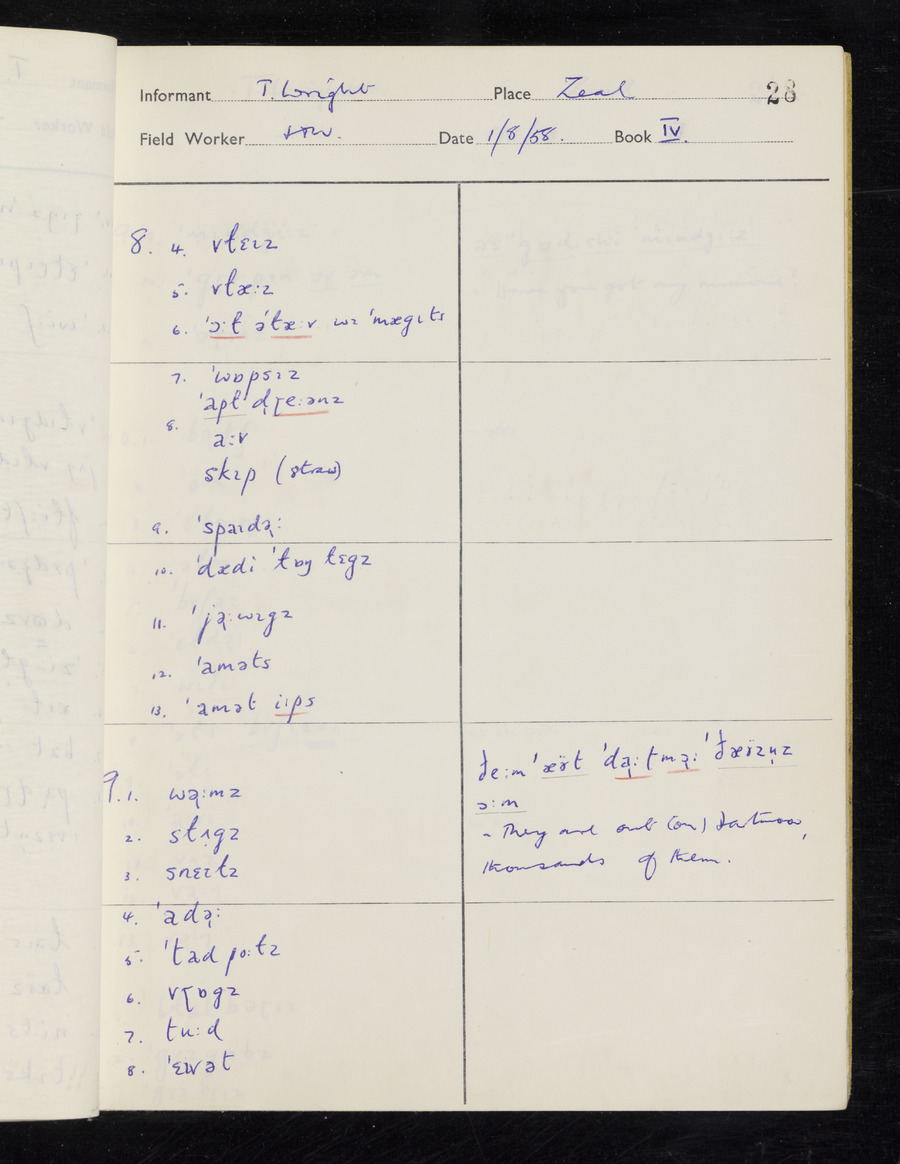 Informant T. Wright Place Zeal 28
Field Worker Date 1/8/58. Book IV.
8. 4. vɫɛɪz
5. vɫæ:z
6. 'ɔ:ɫ ə'tæ:v wɪ 'mægɪts
7. 'wɒpsɪz
8. 'apɫ dɽe:ənz
a:v
skɪp (straw)
9. 'spaɪdə̢:
10. 'dædi 'ɫɒŋ ɫɛgz
11. 'jə̢:wɪgz
12. 'aməts
13. 'amət i:ps
9. 1. wə̢:mz
2. stɪgz
3. snɛɪɫz
4. 'adə̢:
5. 'tad po:ɫz
6. vɽɒgz
7. tu:d
8. 'ɛɪvət
ðe:m 'æÿt 'də̢:tmə̢: 'ðæÿzn̩z
ə:m
- They are out (on) Dartmoor,
thousands of them.